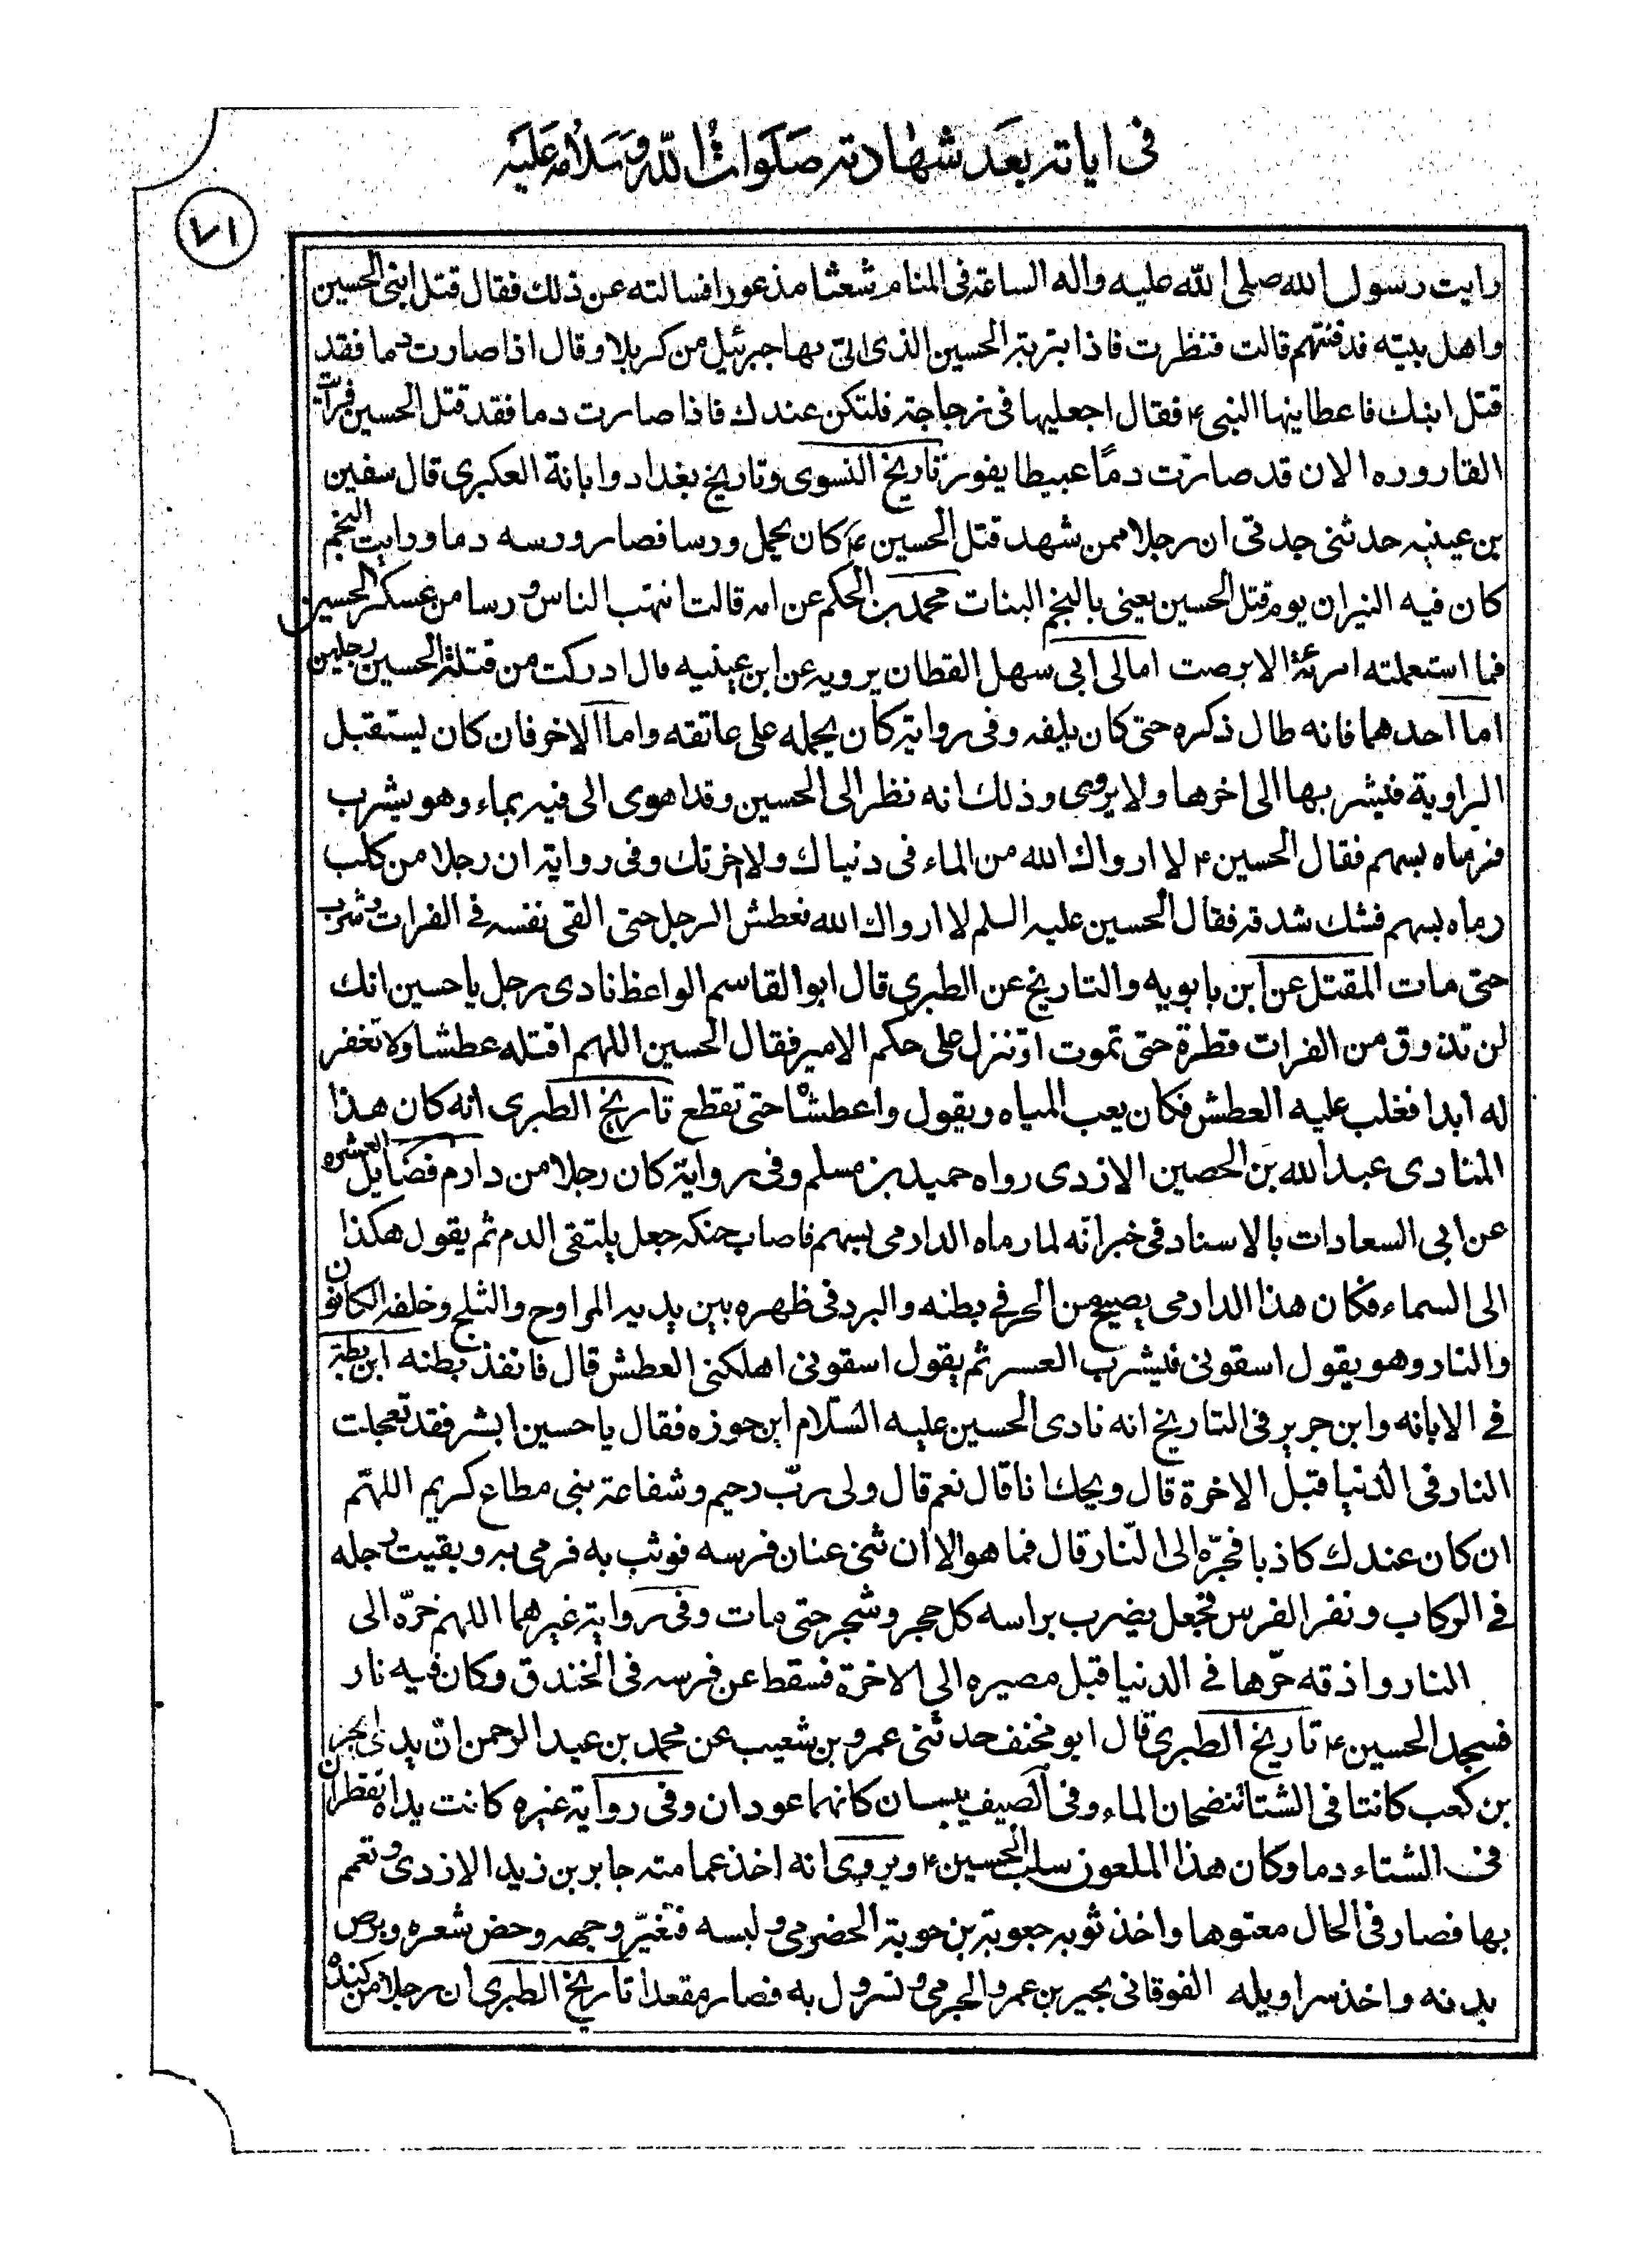 فى اياته بعد شهادته صلوات الله وسلامه عليه
٧١
رايت رسول الله صلى الله عليه واله الساعة فى المنام شعثا مذعورا فسالته عن ذلك فقال قتل ابنى الحسين
واهل بيته فدفنتهم قالت فنظرت فاذا بتربة الحسين الذى اتى بها جبرئيل من كربلا وقال اذا صارت دما فقد
قتل ابنك فاعطانيها النبى ۴ فقال اجعليها فى زجاجة فلتكن عندك فاذا صارت دما فقد قتل الحسين فرات
القاروره الان قد صارت دمًا عبيطا يفور تاريخ النسوى وتاريخ بغداد وابانة العكبرى قال سفين
بن عينيه حدثنى جدتى ان رجلا ممن شهد قتل الحسين ۴ كان يحمل ورسا فصار ورسه دما ورايت النجم
كان فيه النيران يوم قتل الحسين يعنى بالنجم النبات محمد بن الحكم عن امه قالت انتهب الناس ورسا من عسكر الحسين
فما استعملته امرئة الا برصت امالى ابى سهل القطان يرويه عن ابن عينيه قال ادركت من قتلة الحسين رجلين
اما احدهما فانه طال ذكره حتى كان يلفه وفى رواية كان يحمله على عاتقه واما الاخر فان كان يستقبل
الراوية فيشربها الى اخرها ولا يروى وذلك انه نظر الى الحسين وقد اهوى الى فيه بماء وهو يشرب
فرماه بسهم فقال الحسين ۴ لا ارواك الله من الماء فى دنياك ولا اخرتك وفى رواية ان رجلا من كلب
رماه بسهم فشك شدقه فقال الحسين عليه السلم لا ارواك الله فعطش الرجل حتى القى نفسه فى الفرات وشرب
حتى مات المقتل عن ابن بابويه والتاريخ عن الطبرى قال ابو القاسم الواعظ نادى رجل يا حسين انك
لن تذوق من الفرات قطرة حتى تموت او تنزل على حكم الامير فقال الحسين اللهم اقتله عطشا ولا تغفر
له ابدا فغلب عليه العطش فكان يعب المياه ويقول واعطشاه حتى تقطع تاريخ الطبرى انه كان هذا
المنادى عبد الله بن الحصين الازدى رواه حميد بن مسلم وفى رواية كان رجلا من دارم فضايل العشره
عن ابى السعادات بالاسناد فى خبر انّه لما رماه الدارمى بسهم فاصاب حنكه جعل يلتقى الدم ثم يقول هكذا
الى السماء فكان هذا الدارمى يصيح من الحر فى بطنه والبرد فى ظهره بين يديه المراوح والثلج وخلفه الكانون
والنار وهو يقول اسقونى فيشرب العسر ثم يقول اسقونى اهلكنى العطش قال فانفذ بطنه ابن بطة
فى الابانه وابن جرير فى التاريخ انه نادى الحسين عليه السّلام ابن جوزه فقال يا حسين ابشر فقد تعجلت
النار فى الدنيا قبل الاخرة قال ويحك انا قال نعم قال ولى ربّ رحيم وشفاعة نبى مطاع كريم اللهمّ
ان كان عندك كاذبا فجرّه الى النّار قال فما هو الا ان ثنى عنان فرسه فوثب به فرمى به وبقيت رجله
فى الركاب ونفر الفرس فجعل يضرب براسه كل حجر وشجر حتى مات وفى رواية غيرهما اللهم جرّه الى
النار واذقه حرّها فى الدنيا قبل مصيره الى الاخرة فسقط عن فرسه فى الخندق وكان فيه نار
فسجد الحسين ۴ تاريخ الطبرى قال ابو مخنف حدثنى عمرو بن شعيب عن محمد بن عبد الرحمن انّ يدى ابجر
بن كعب كانتا فى الشتا تنضحان الماء وفى الصيف يبسان كانهما عودان وفى رواية غيره كانت يداه تقطران
فى الشتاء دما وكان هذا الملعون سلب الحسين ۴ ويروى انه اخذ عمامته جابر بن زيد الازدى وتعمم
بها فصار فى الحال معتوها واخذ ثوبه جعوبة بن حوية الحضرمى ولبسه فتغيّر وجهه وحض شعره وبرص
بدنه واخذ سراويله الفوقانى بجير بن عمرو الجرمى وتسرول به فصار مقعدا تاريخ الطبرى ان رجلا من كنده